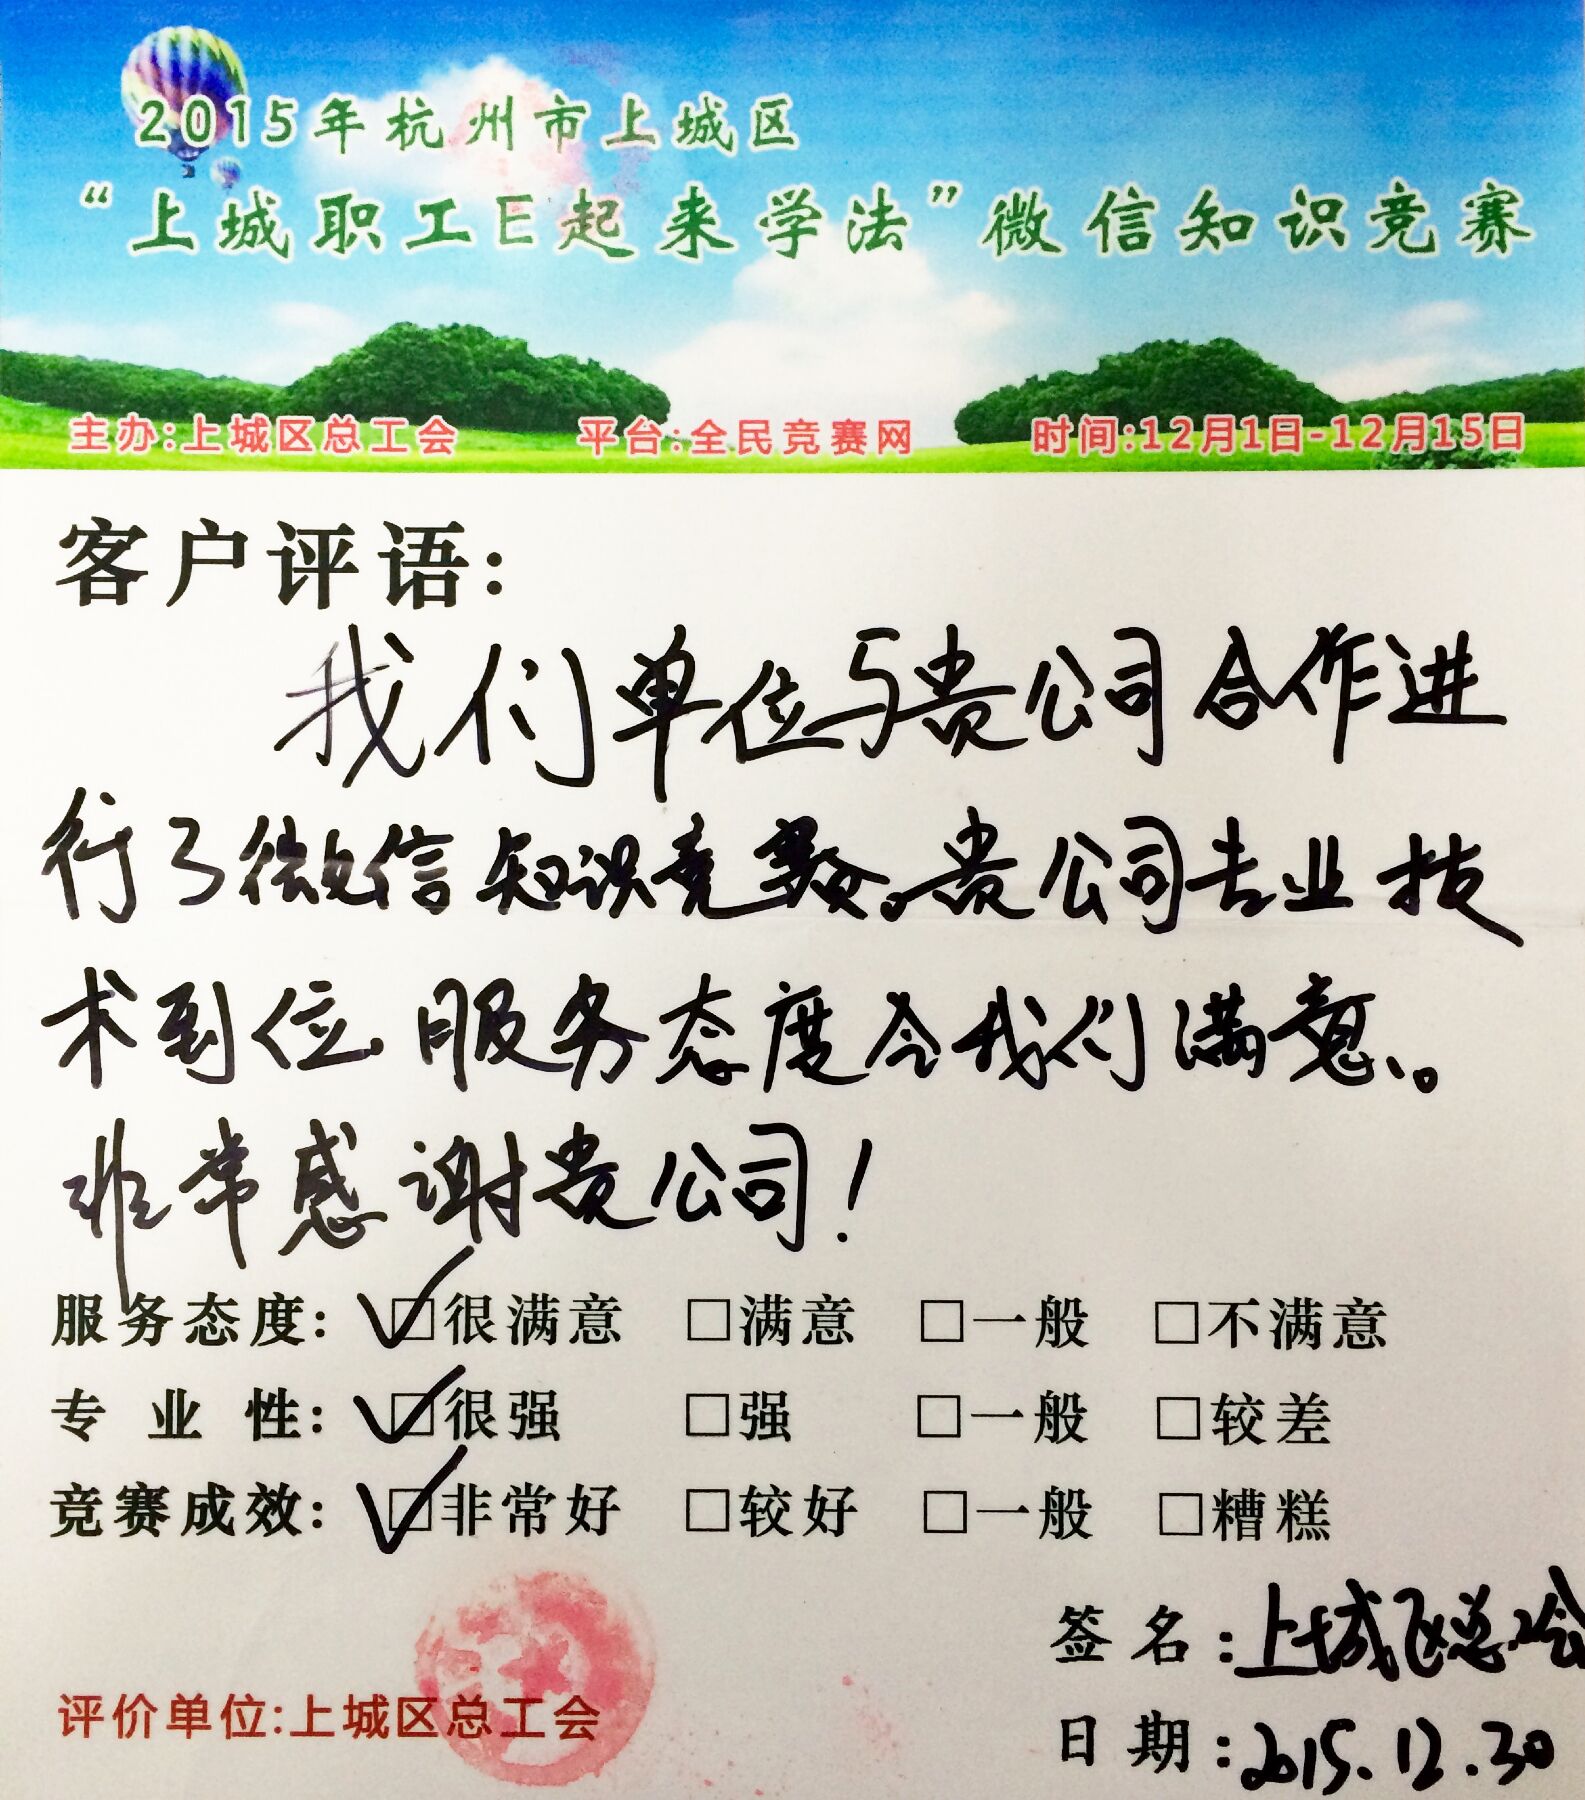 2015年杭州市上城区
“上城职工E起来学法”微信知识竞赛
主办:上城区总工会 平台:全民竞赛网 时间:12月1日-12月15日
客户评语:
我们单位与贵公司合作进
行了微信知识竞赛。贵公司专业技
术到位 服务态度令我们满意。
非常感谢贵公司!
服务态度: ✓□很满意 □满意 □一般 □不满意
专业性: ✓□很强 □强 □一般 □较差
竞赛成效: ✓□非常好 □较好 □一般 □糟糕
签名:上城区总工会
评价单位:上城区总工会
日期:2015.12.30